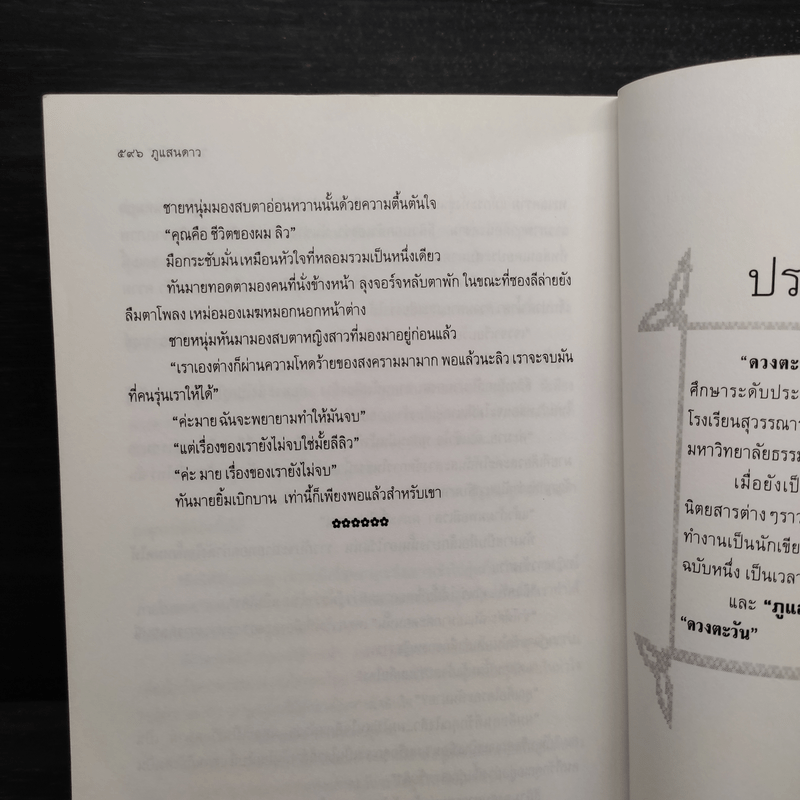 ๕๙๖ ภูแสนดาว
ชายหนุ่มมองสบตาอ่อนหวานนั้นด้วยความตื้นตันใจ
“คุณคือ ชีวิตของผม ลิว”
มือกระชับมั่น เหมือนหัวใจที่หลอมรวมเป็นหนึ่งเดียว
ทันมายทอดตามองคนที่นั่งข้างหน้า ลุงจอร์จหลับตาพัก ในขณะที่ซองลีล่ายยัง
ลืมตาโพลง เหม่อมองเมฆหมอกนอกหน้าต่าง
ชายหนุ่มหันมามองสบตาหญิงสาวที่มองมาอยู่ก่อนแล้ว
“เราเองต่างก็ผ่านความโหดร้ายของสงครามมามาก พอแล้วนะลิว เราจะจบมัน
ที่คนรุ่นเราให้ได้”
“ค่ะมาย ฉันจะพยายามทำให้มันจบ”
“แต่เรื่องของเรายังไม่จบใช่มั้ยลีลิว”
“ค่ะ มาย เรื่องของเรายังไม่จบ”
ทันมายยิ้มเบิกบาน เท่านี้ก็เพียงพอแล้วสำหรับเขา
✿✿✿✿✿✿
ประ
“ดวงตะ
ศึกษาระดับประ
โรงเรียนสุวรรณาร
มหาวิทยาลัยธรรม
เมื่อยังเป็
นิตยสารต่าง ๆ ราว
ทำงานเป็นนักเขีย
ฉบับหนึ่ง เป็นเวลา
และ “ภูแส
“ดวงตะวัน”